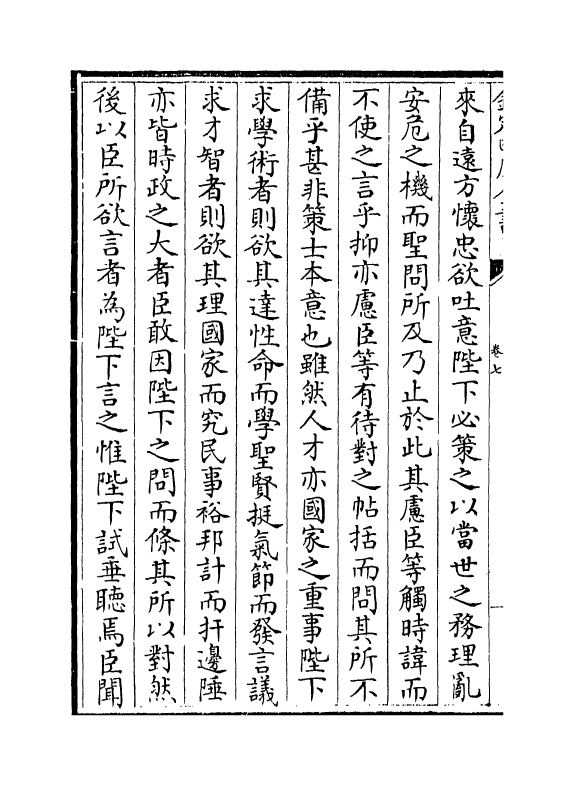 卷七
來自遠方懷忠欲吐意陛下必策之以當世之務理亂
安危之機而聖問所及乃止於此其慮臣等觸時諱而
不使之言乎抑亦慮臣等有待對之帖括而問其所不
備乎甚非策士本意也雖然人才亦國家之重事陛下
求學術者則欲其達性命而學聖賢挺氣節而發言議
求才智者則欲其理國家而究民事裕邦計而扞邊陲
亦皆時政之大者臣敢因陛下之問而條其所以對然
後以臣所欲言者為陛下言之惟陛下試垂聽焉臣聞